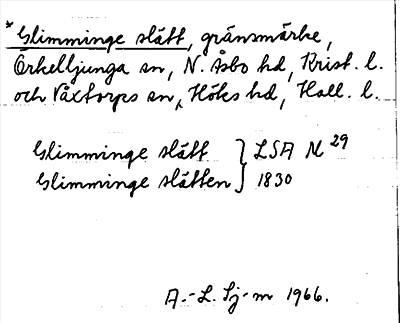 * Glimminge slätt, gränsmärke,
Örkelljunga sn, N. Åsbo hd, Krist. l.
och Våxtorps sn, Höks hd, Hall. l.
Glimminge slätt } LSA N 29
Glimminge slätten } 1830
A.-L. Sj-m 1966.